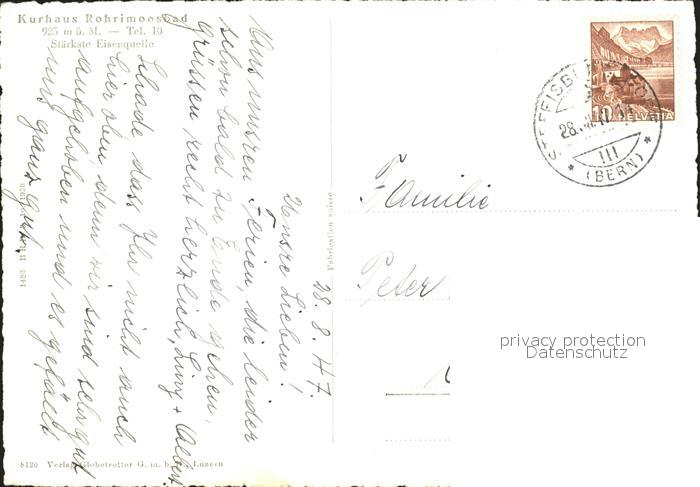 Kurhaus Rohrimoosbad
925 m ü. M. — Tel. 10
Stärkste Eisenquelle
28. 8. 47.
Unsre Lieben!
Aus unsren Ferien, die leider
schon bald zu Ende gehen,
grüssen recht herzlich, Liny + Albert
Schade dass Ihr nicht auch
hier oben, denn wir sind sehr gut
aufgehoben und es gefällt
uns ganz gut.
Fabrication suisse
Familie
Peter
HELVETIA
10
(BERN)
III
privacy protection
Datenschutz
8120 Verlag Globetrotter G. m. b. H., Luzern